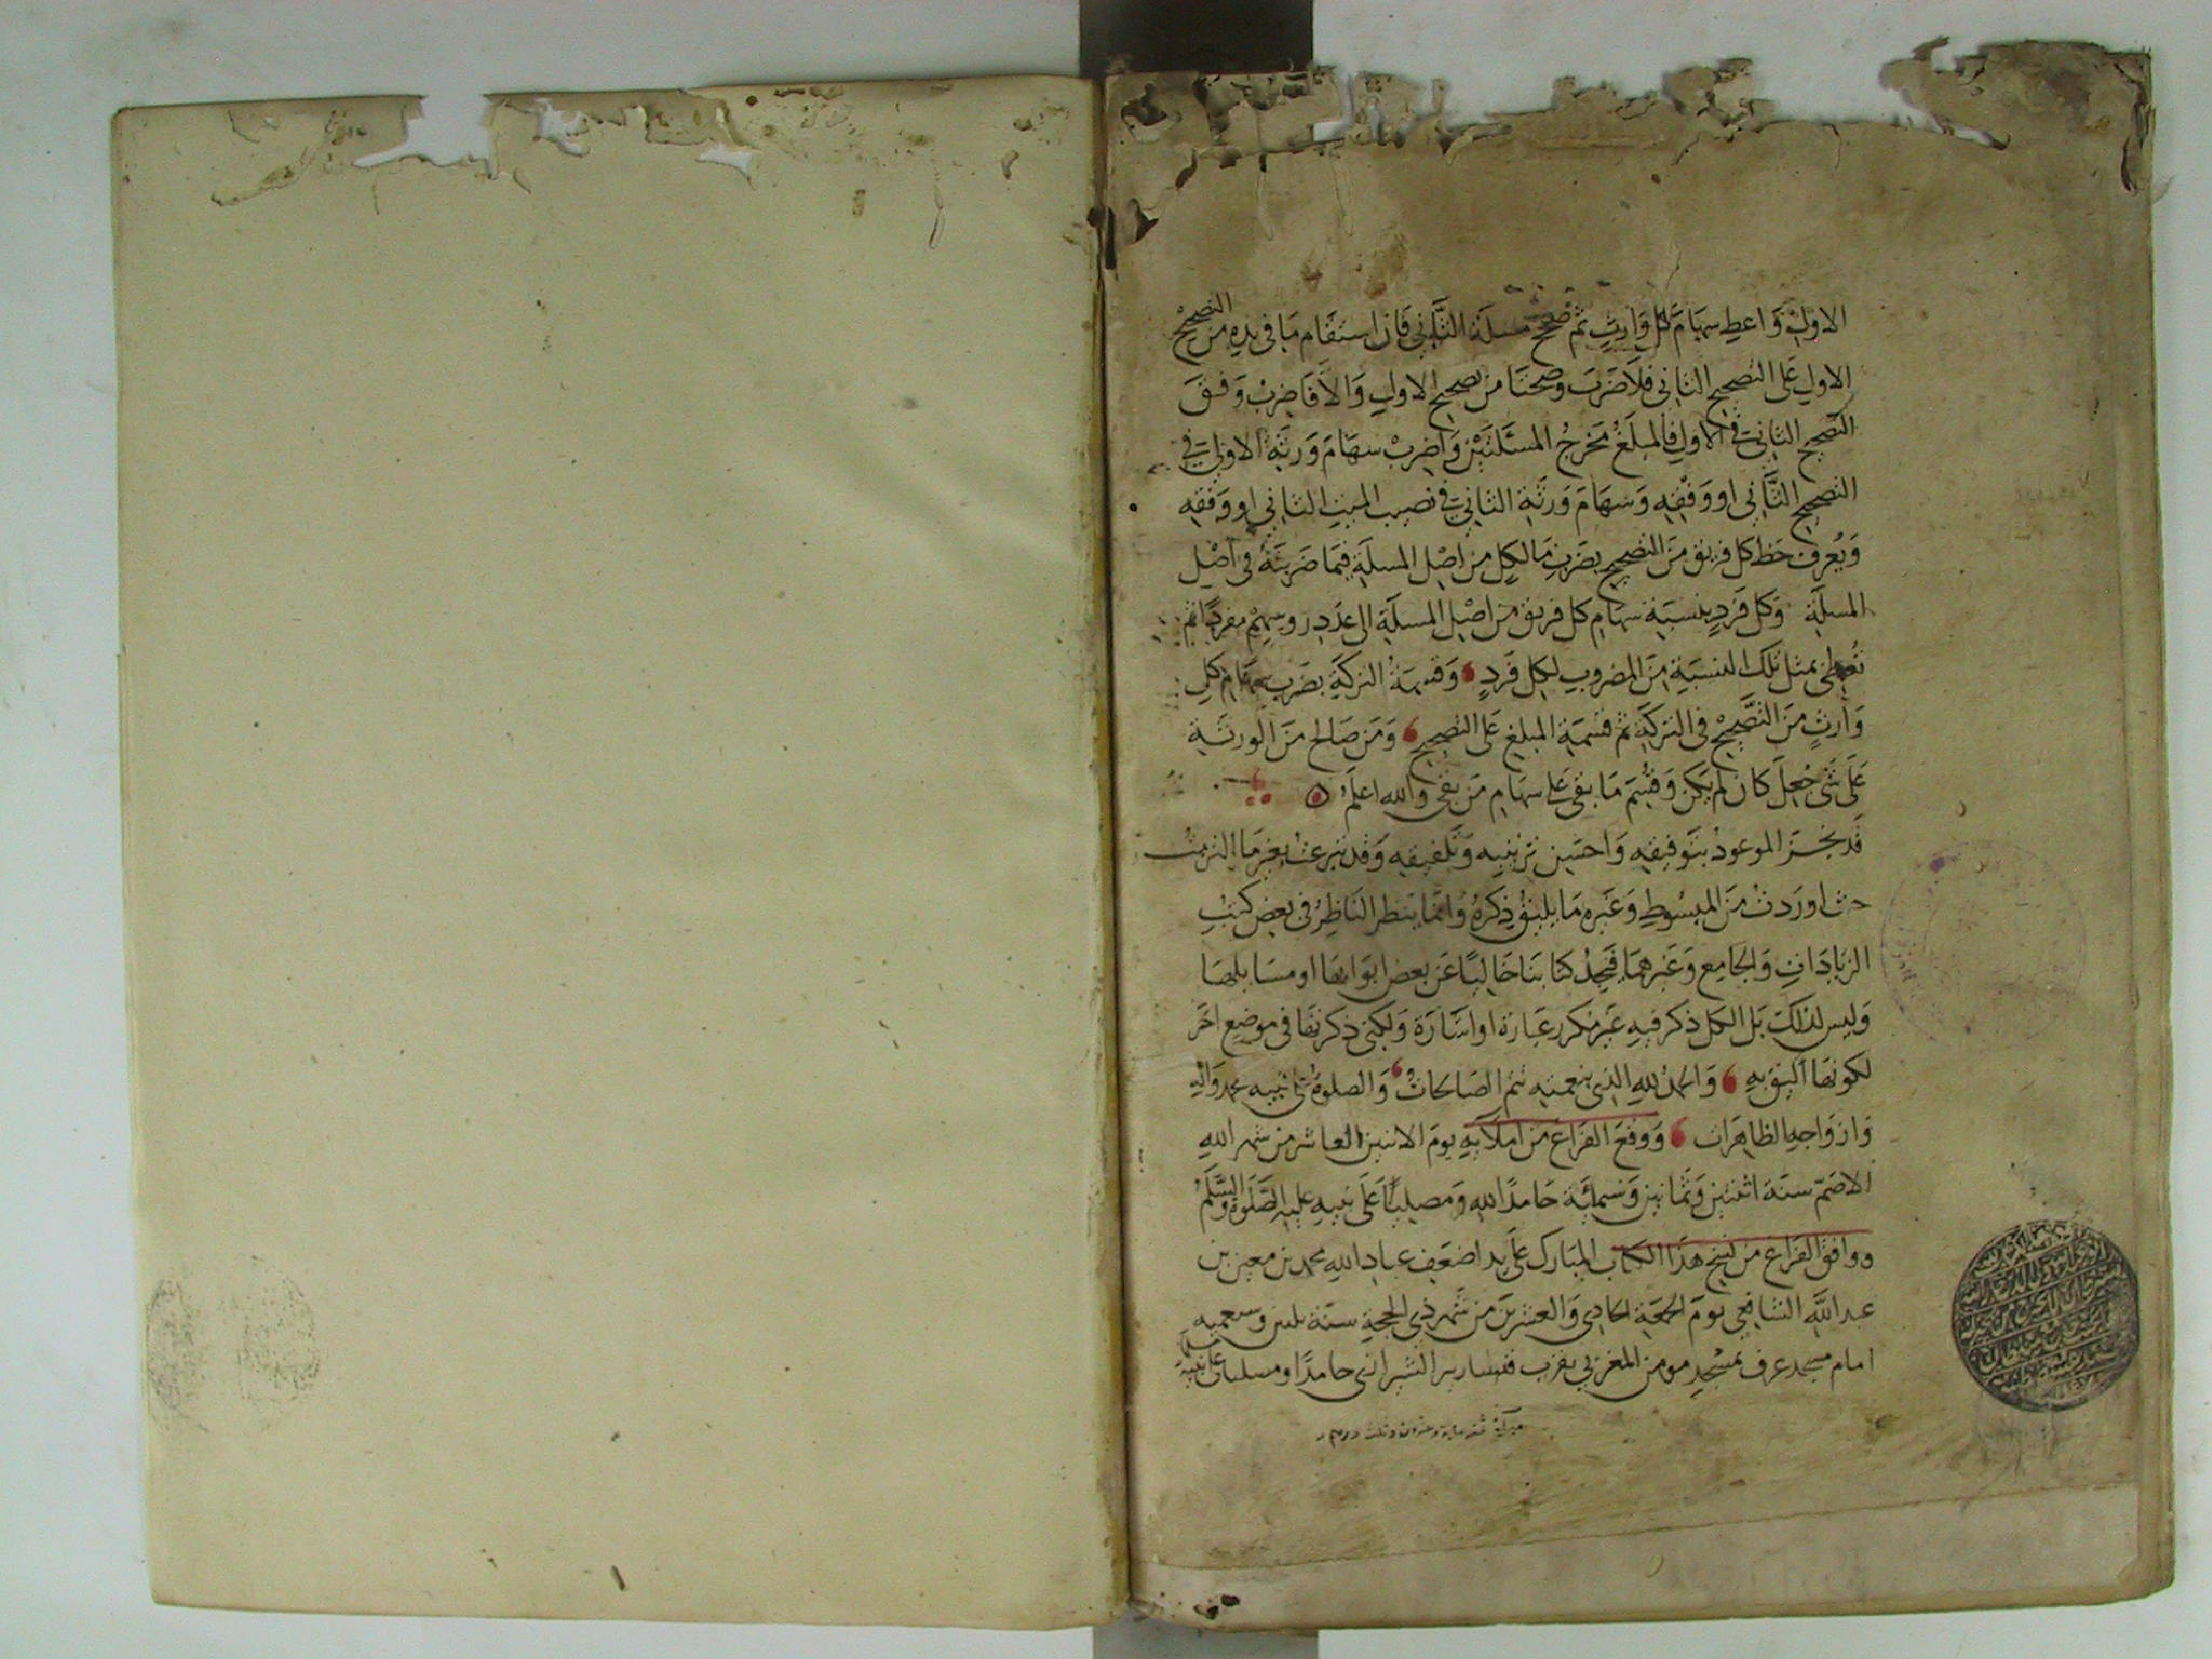 الاول وَاعطِ سهَامَ كل وَارثٍ ثم صحح مسلة الثَّاني فَان استقَام مَا في يدِهِ من التصحيح
الاولِ عَلى التصحيح الثاني فلاَ ضَربَ وصحتَا من تصحيح الاولِ وَالاَّ فَاضرب وَفقَ
التصحيح الثاني في الاولِ فالمبلَغُ مَخرجُ المسئَلتَيْن وَاضربْ سهَامَ وَرثَةِ الاولِ في
التصحيح الثَّاني او وَفْقِهِ وَسهَامَ وَرثةِ الثاني في نصيب الميتِ الثاني او وَفقهِ
وَيُعرف حَظ كل فريق منَ التصحيح بضَربِ مَا لكل من اصْلِ المسلَةِ فيمَا ضَربتَهُ في اصْلِ
المسلَةِ وَكل فَردٍ بنسبَةِ سهَامِ كل فريق من اصْلِ المسلَةِ الى عَدَدِ روسهِمْ مفردًا ثم
تُعطى بمثل تلكَ النسبَةِ منَ المضروبِ لكل فَردٍ وَقسمَةُ التركَةِ بضَربِ سهَامِ كلِ
وَارثٍ منَ التَّصْحيحْ في التركَةِ ثم قسْمَةِ المبلغ عَلى التصحيح وَمَن صَالح منَ الورثَةِ
عَلَى شَيْ جُعِلَ كان لم يَكن وَقُسِمَ مَا بقى عَلى سهَامِ مَن بقى وَالله اعلَمُ
قَد نجزَ الموعودُ بتَوفيقهِ وَاحسَن ترتيبه وَتَلفيقه وَقد تبرعتُ بغير مَا التزمتُ
حيث اورَدتُ منَ المبسُوطِ وَغَيرِه مَا يليقُ ذِكرُهُ وَانما ينظر النَاظِرُ في بعض كتبِ
الزيَادَاتِ وَالجَامِع وَغَيرهمَا فيَجدُ كتَابنَا خَاليًا عَن بعض ابوَابهَا او مسَايلهَا
وَليس لذلكَ بَل الكل ذكر فيهِ غَير مكرر عبَارة او اشَارَة وَلكنى ذكرتهَا في موضع اخَر
لكونهَا اليقَ بهِ وَالحمدُ للهِ الذى بنعمته تتم الصَالحاتُ وَالصلوةُ على نبيه محمد وَالهِ
وَازوَاجهِ الطاهرَات وَوقعَ الفرَاغ من املاَيهِ يومَ الاثنين العاشر من شهر اللهِ
الاصَمّ سنَة اثنتين وَثمَانين وَخمسمائة حَامدًا للهِ وَمصليًا عَلى نبيهِ عليهِ الصَّلوة والسَّلَمُ
ووافق الفراغ من نسخ هذا الكتاب المبَارك عَلى يد اضعَفِ عبادِ اللهِ محمد بن معين بن
عبد اللَّه الشافعي يومَ الجمعَة الحَادى وَالعشرين من شهر ذى الحجةِ سنَة ثلثين وسبعمية
امام مسجد عرف بمسْجدِ مومن المغربي بقرب قيساريه الشيراني حامدًا ومسلما على نبيه